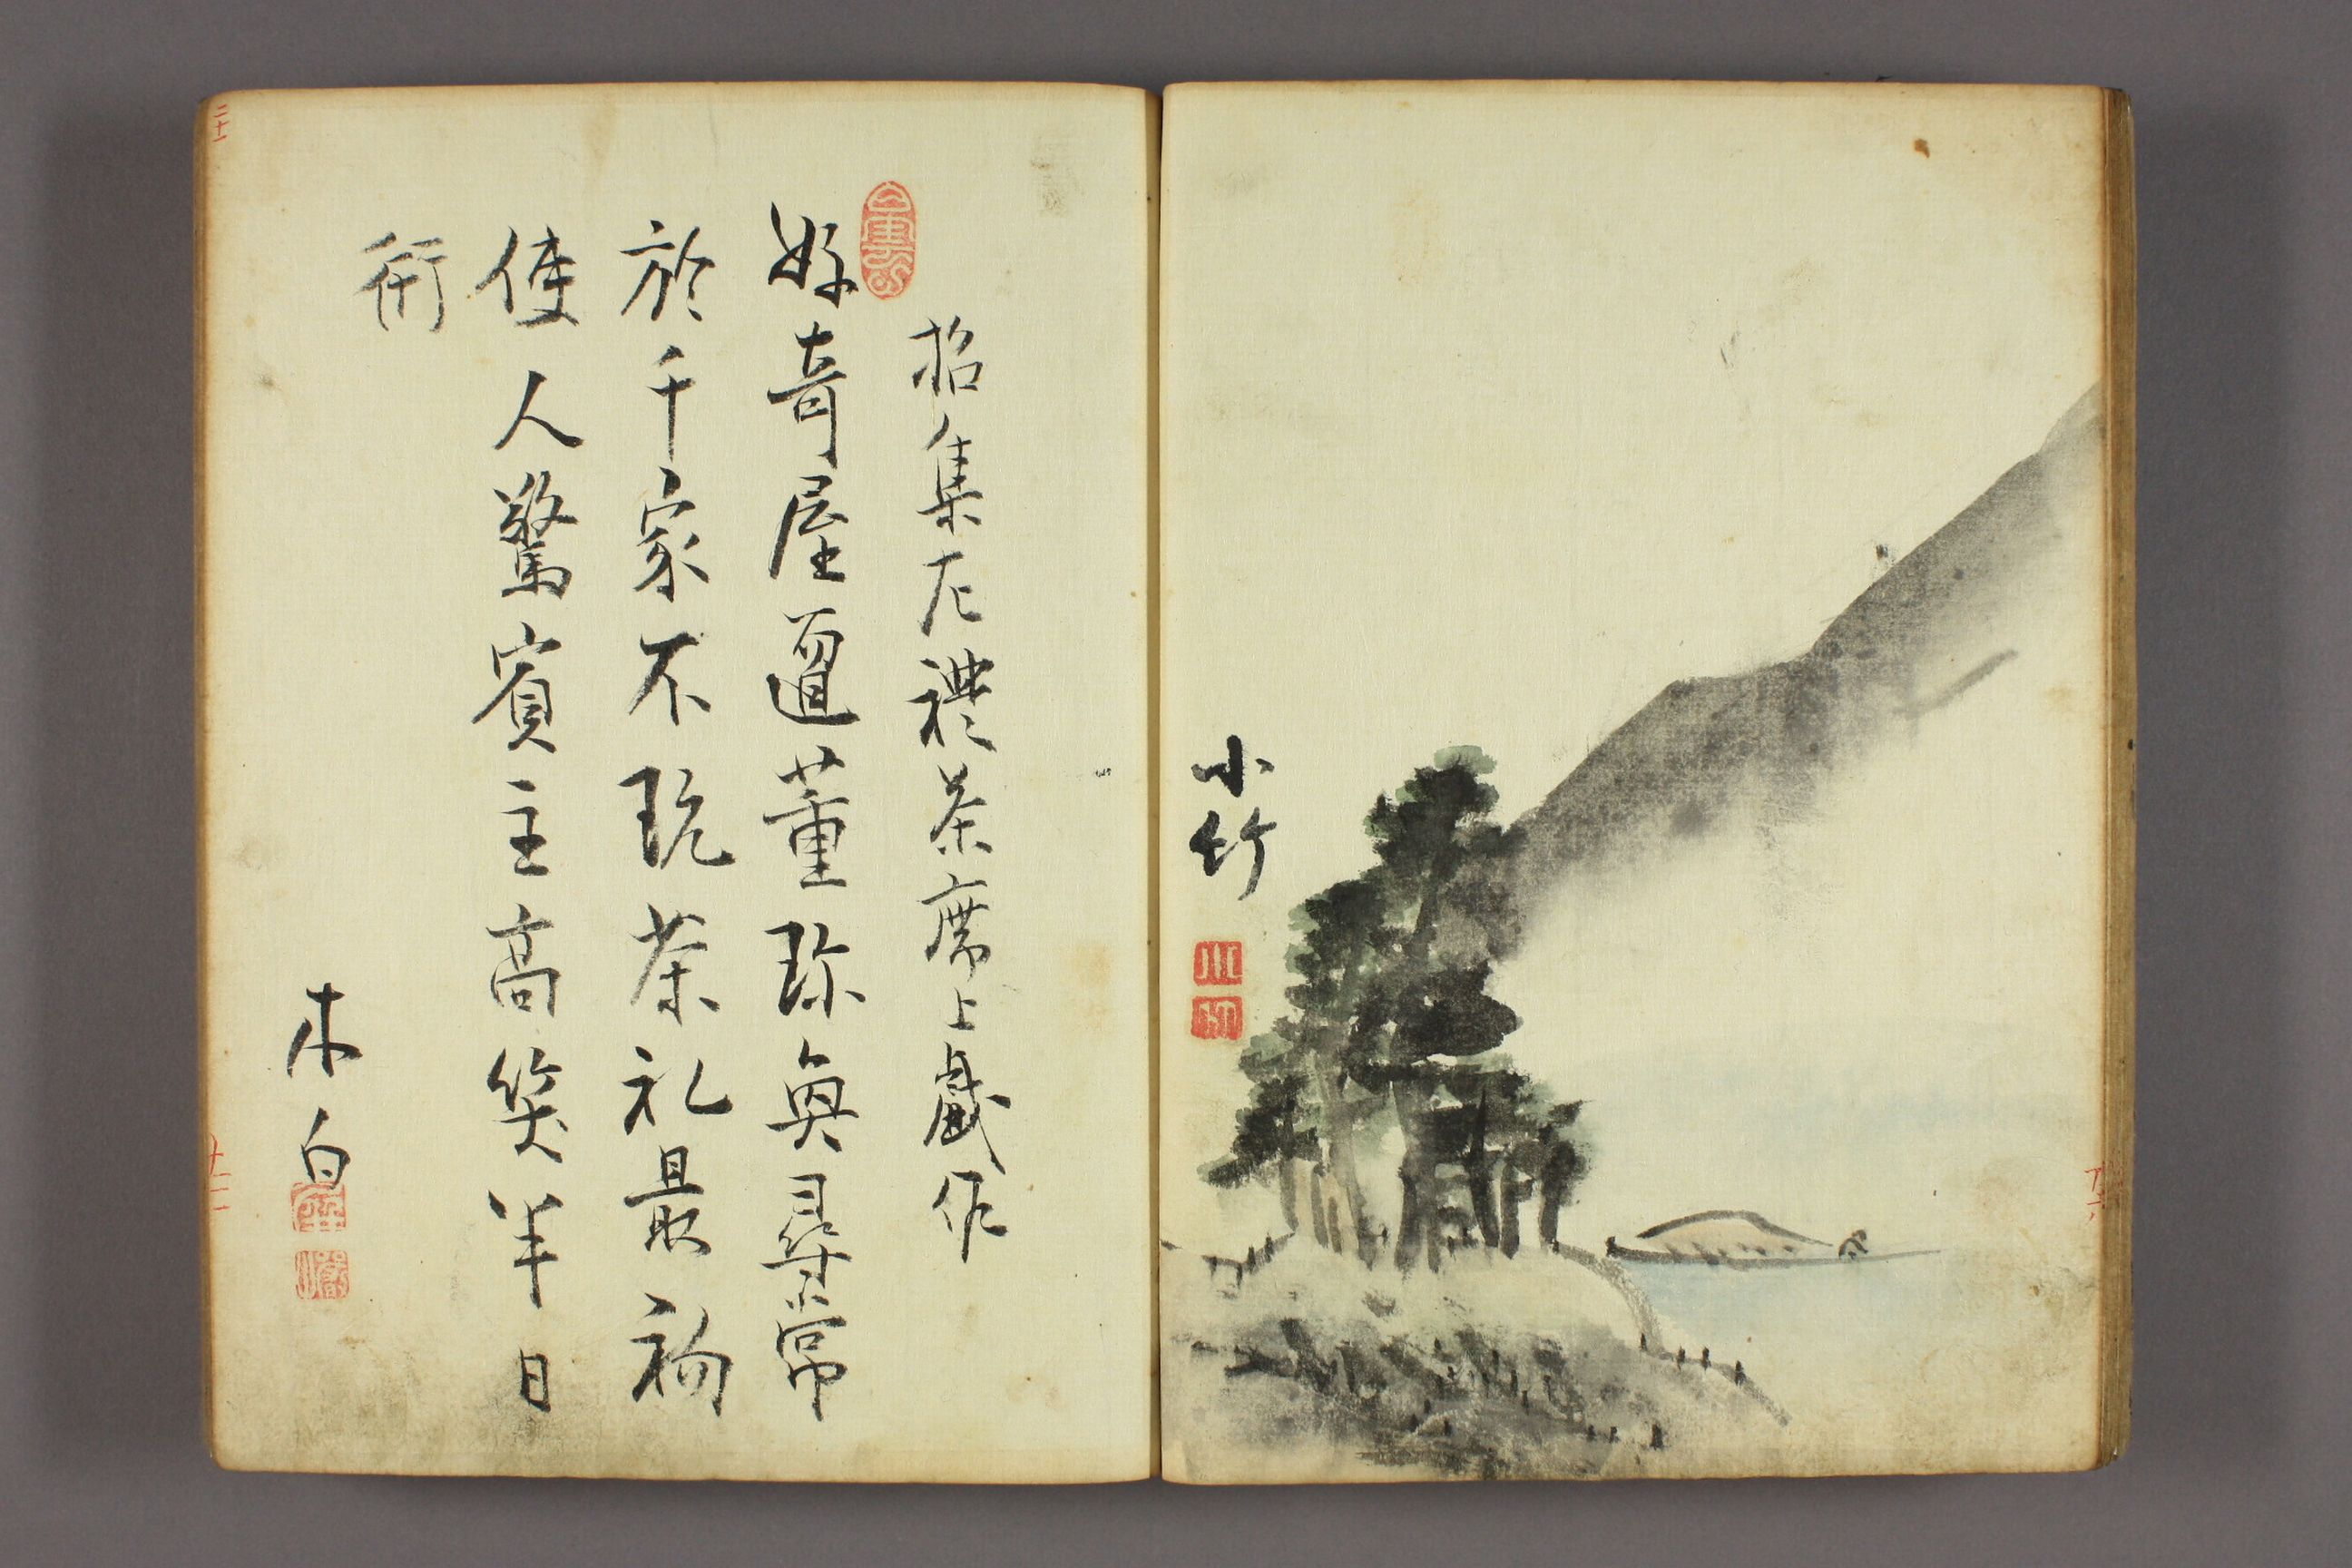 小竹
招集左禮茶席上戯作
好奇屋董珎尋常
於千家不玩茶礼最
使人驚賓主高笑半日
木白